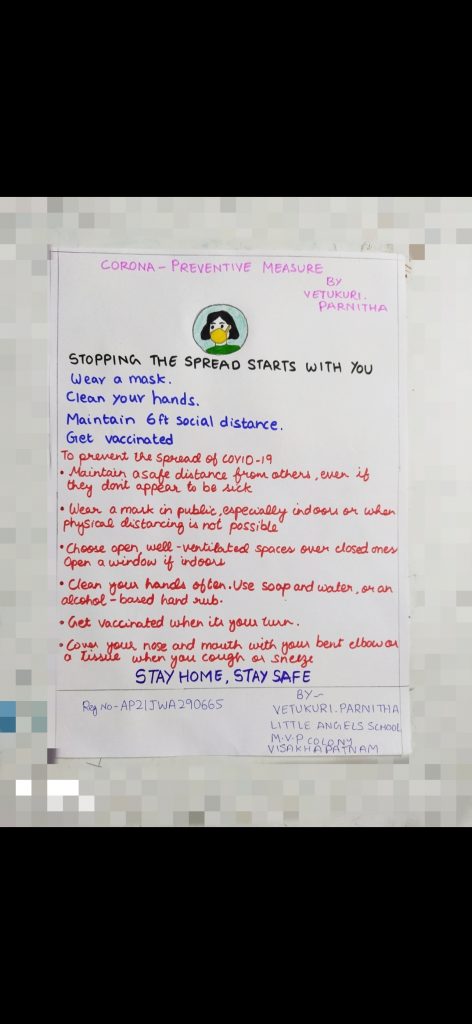 CORONA - PREVENTIVE MEASURE
BY
VETUKURI.
PARNITHA
STOPPING THE SPREAD STARTS WITH YOU
Wear a mask.
Clean your hands.
Maintain 6ft social distance.
Get vaccinated
To prevent the spread of COVID-19
• Maintain a safe distance from others, even if
they don't appear to be sick
• Wear a mask in public, especially indoors or when
physical distancing is not possible
• Choose open, well-ventilated spaces over closed ones
Open a window if indoors
• Clean your hands often. Use soap and water, or an
alcohol-based hand rub.
• Get vaccinated when its your turn.
• Cover your nose and mouth with your bent elbow or
a tissue when you cough or sneeze
STAY HOME, STAY SAFE
Reg No - AP21JWA290665
BY ~
VETUKURI.PARNITHA
LITTLE ANGELS SCHOOL
M.V.P COLONY
VISAKHAPATNAM